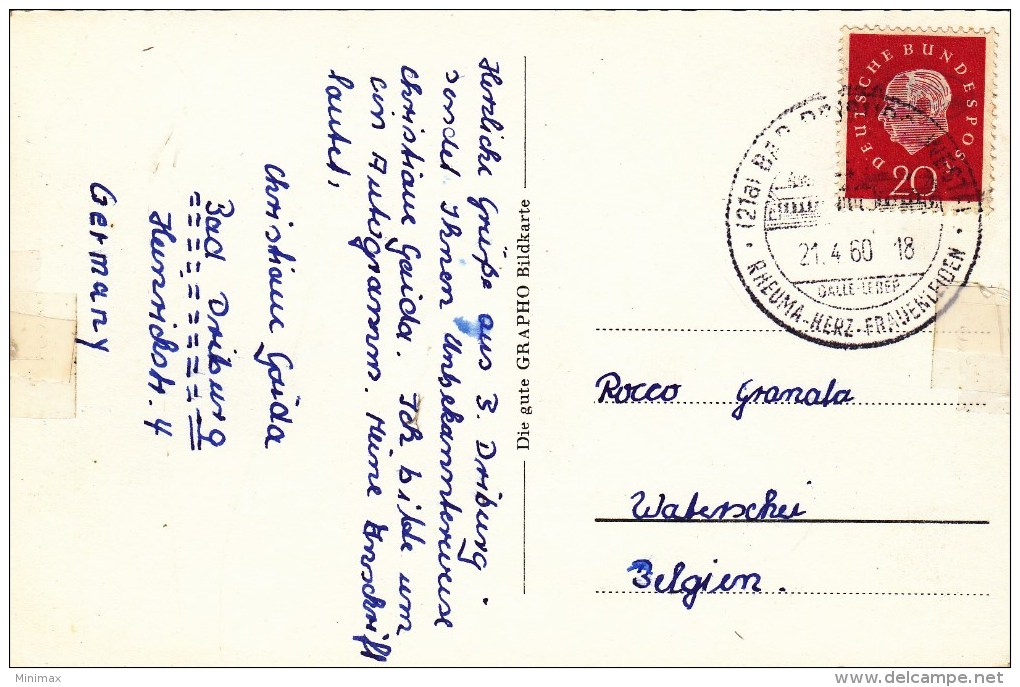 Herzliche Grüße aus B. Driburg
sendet Ihnen Unbekannterweise
Christiane Gaida. Ich bitte um
ein Autogramm. Meine Anschrift
lautet:
Christiane Gaida
Bad Driburg
Heinrichstr. 4
Germany
Die gute GRAPHO Bildkarte
DEUTSCHE BUNDESPOST
20
(21a) BAD DRIBURG (WESTF)
21.4.60 18
GALLE-LEBER
RHEUMA-HERZ-FRAUENLEIDEN
Rocco Granata
Waterschei
Belgien.
Minimax
delcampe.net